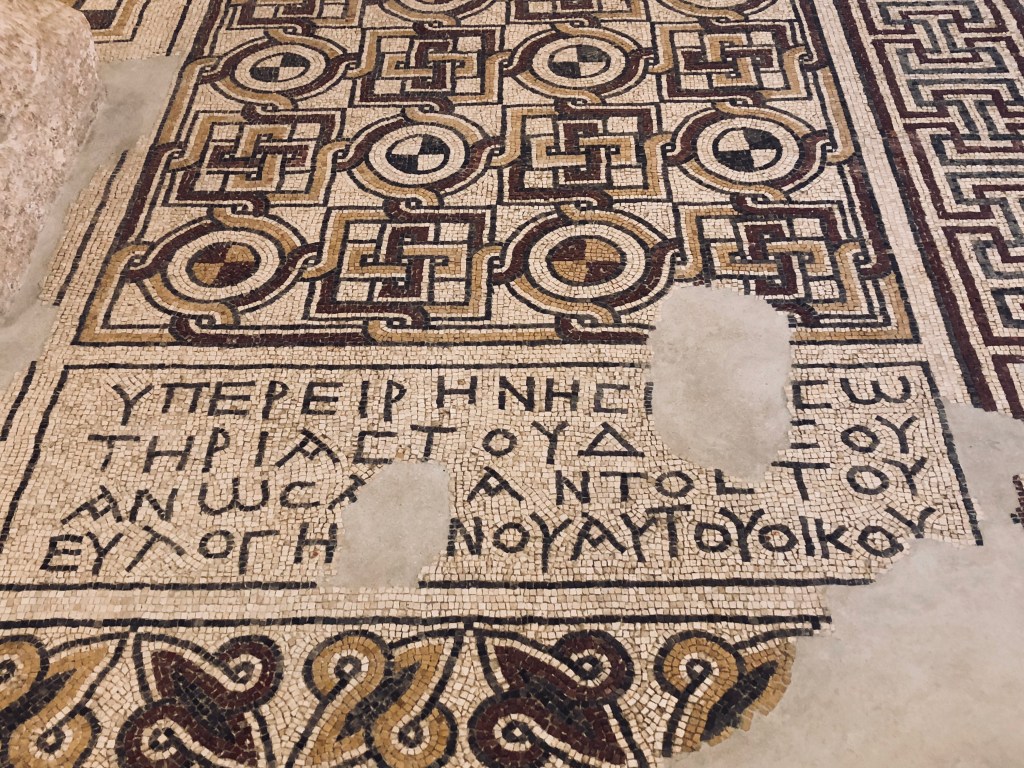 ΥΠΕΡΕΙΡΗΝΗϹϹ ϹΩ
ΤΗΡΙΑϹΤΟΥΔ ΞΟΥ
ΑΝΩϹΑ ΑΝΤΟϹΤΟΥ
ΕΥΛΟΓΗ ΝΟΥΑΥΤΟΥΟΙΚΟΥ